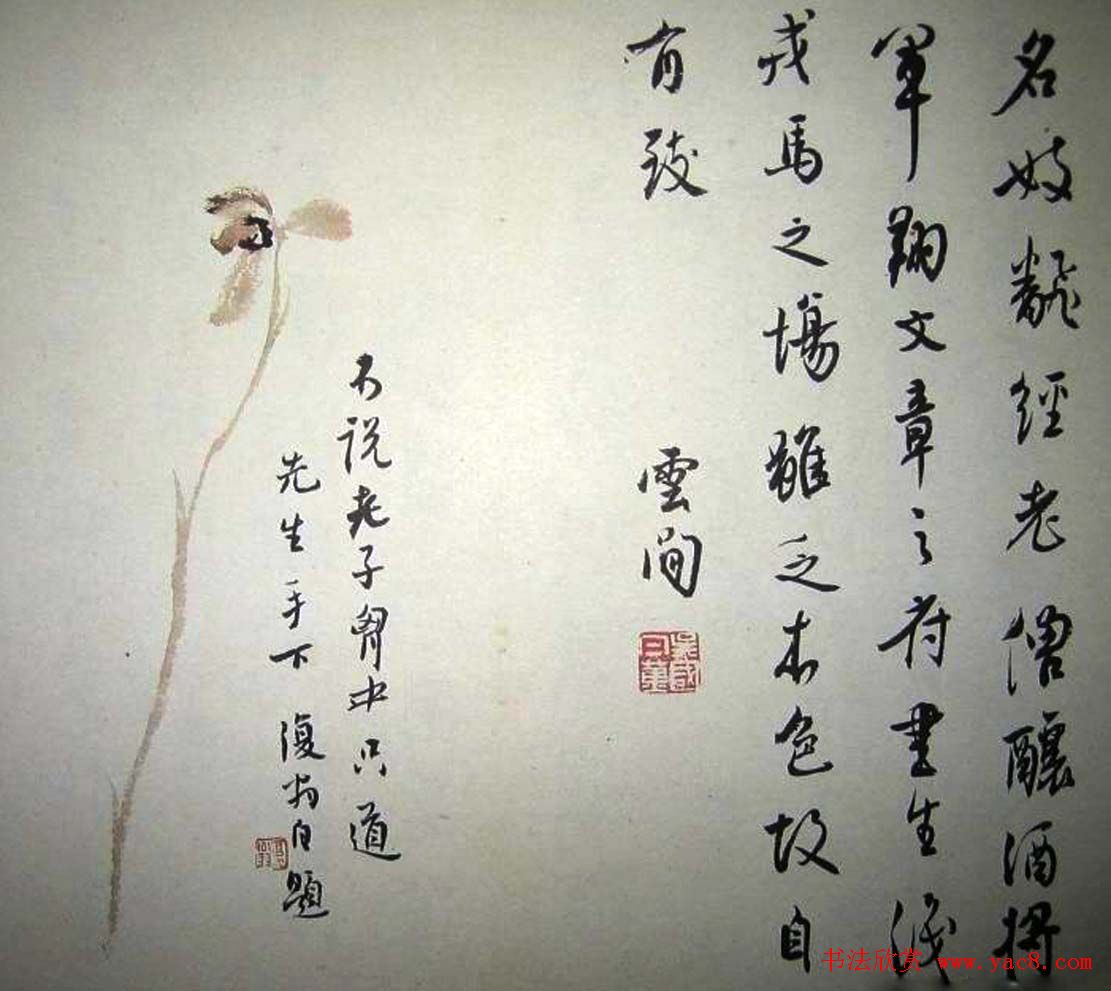 名妓飜經老僧釀酒將
軍翔文章之府書生踐
戎馬之場雖乏本色故自
有致
雲間
不說老子胷中只道
先生手下
自題
书法欣赏 www.yac8.com